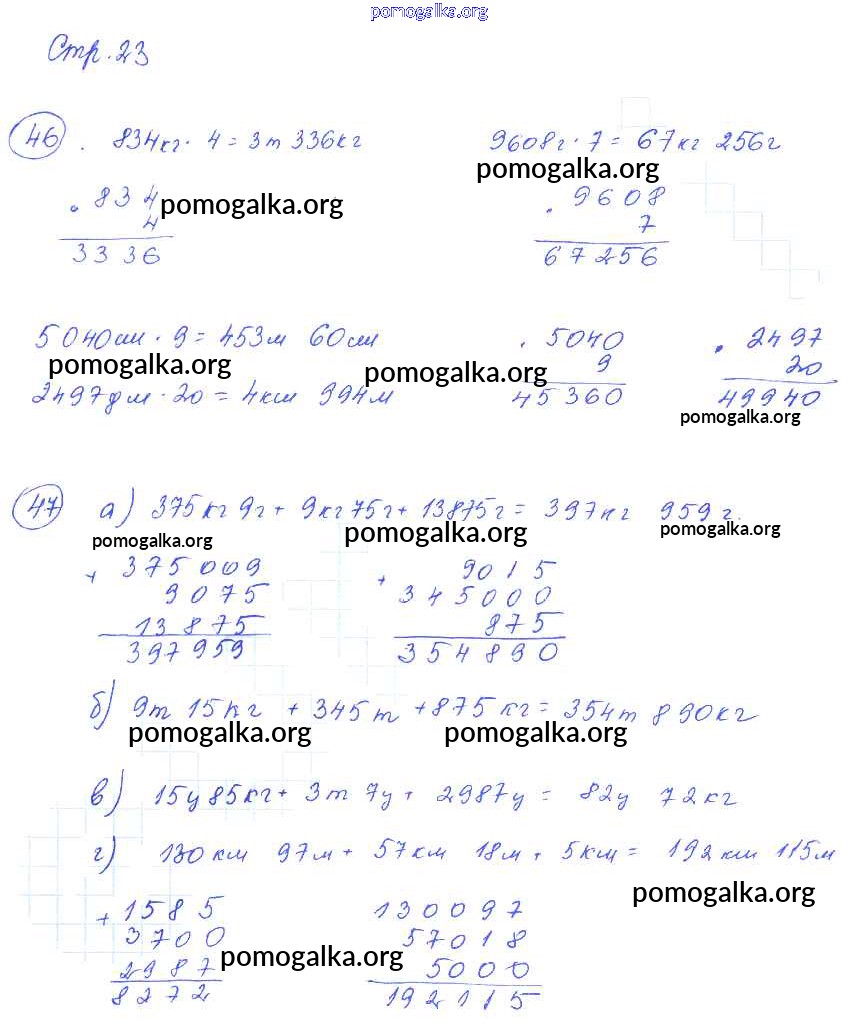 pomogalka.org
Стр. 23
46 . 834кг · 4 = 3т 336кг 9608г · 7 = 67кг 256г
pomogalka.org
· 834 pomogalka.org · 9608
4 7
3336 67256
5040см · 9 = 453м 60см · 5040 · 2497
pomogalka.org pomogalka.org 9 20
2497дм · 20 = 4км 994м 45360 49940
pomogalka.org
47 а) 375кг 9г + 9кг 75г + 13875г = 397кг 959г.
pomogalka.org pomogalka.org pomogalka.org
+ 375009 + 9015
9075 345000
13875 875
397959 354890
б) 9т 15кг + 345т + 875кг = 354т 890кг
pomogalka.org pomogalka.org
в) 15ц 85кг + 3т 7ц + 2987ц = 82ц 72кг
г) 130км 97м + 57км 18м + 5км = 192км 115м
pomogalka.org
+ 1585 130097
3700 57018
2987 pomogalka.org 5000
8272 192115